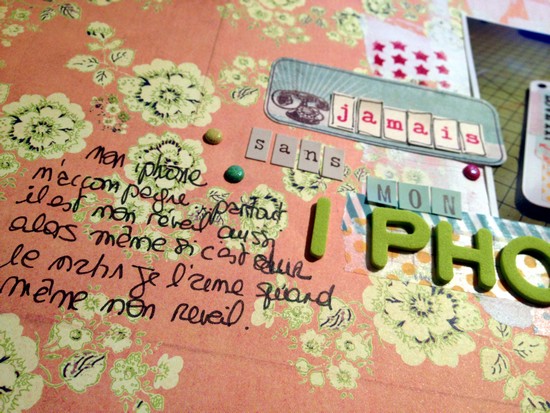 jamais
sans
MON
I PHO
mon phone
m'accompagne partout
il est mon réveil aussi
alors même si c'est dur
le matin je l'aime quand
même mon reveil.